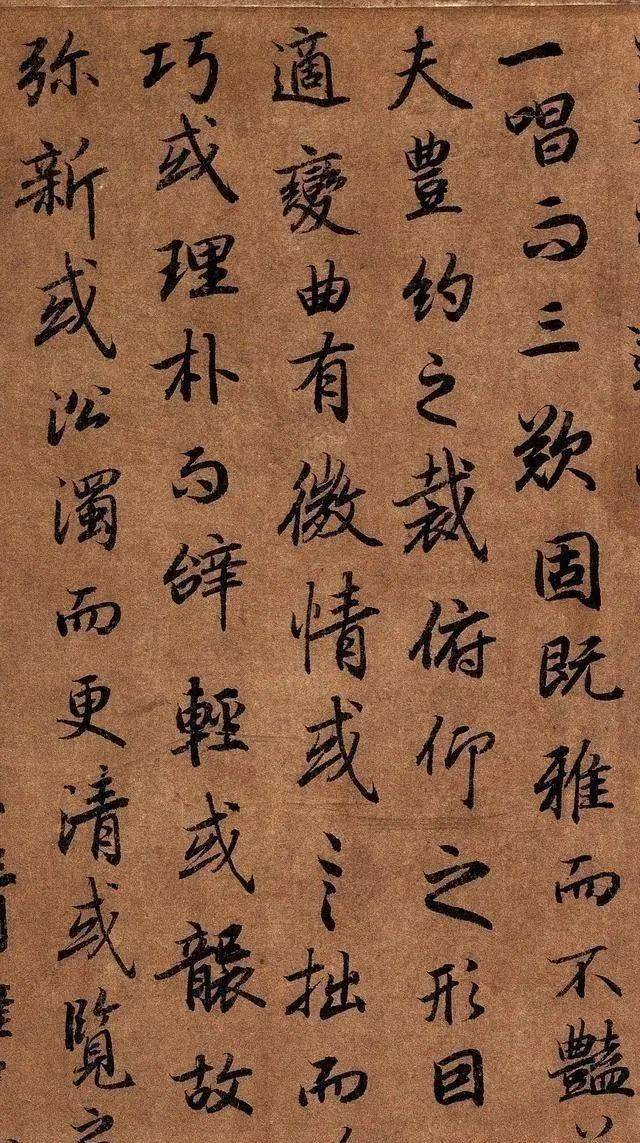 一唱而三歎固既雅而不艶
夫豊約之裁俯仰之形囙
適變曲有微情或言拙而
巧或理朴而辝輕或襲故
弥新或沿濁而更清或覽之